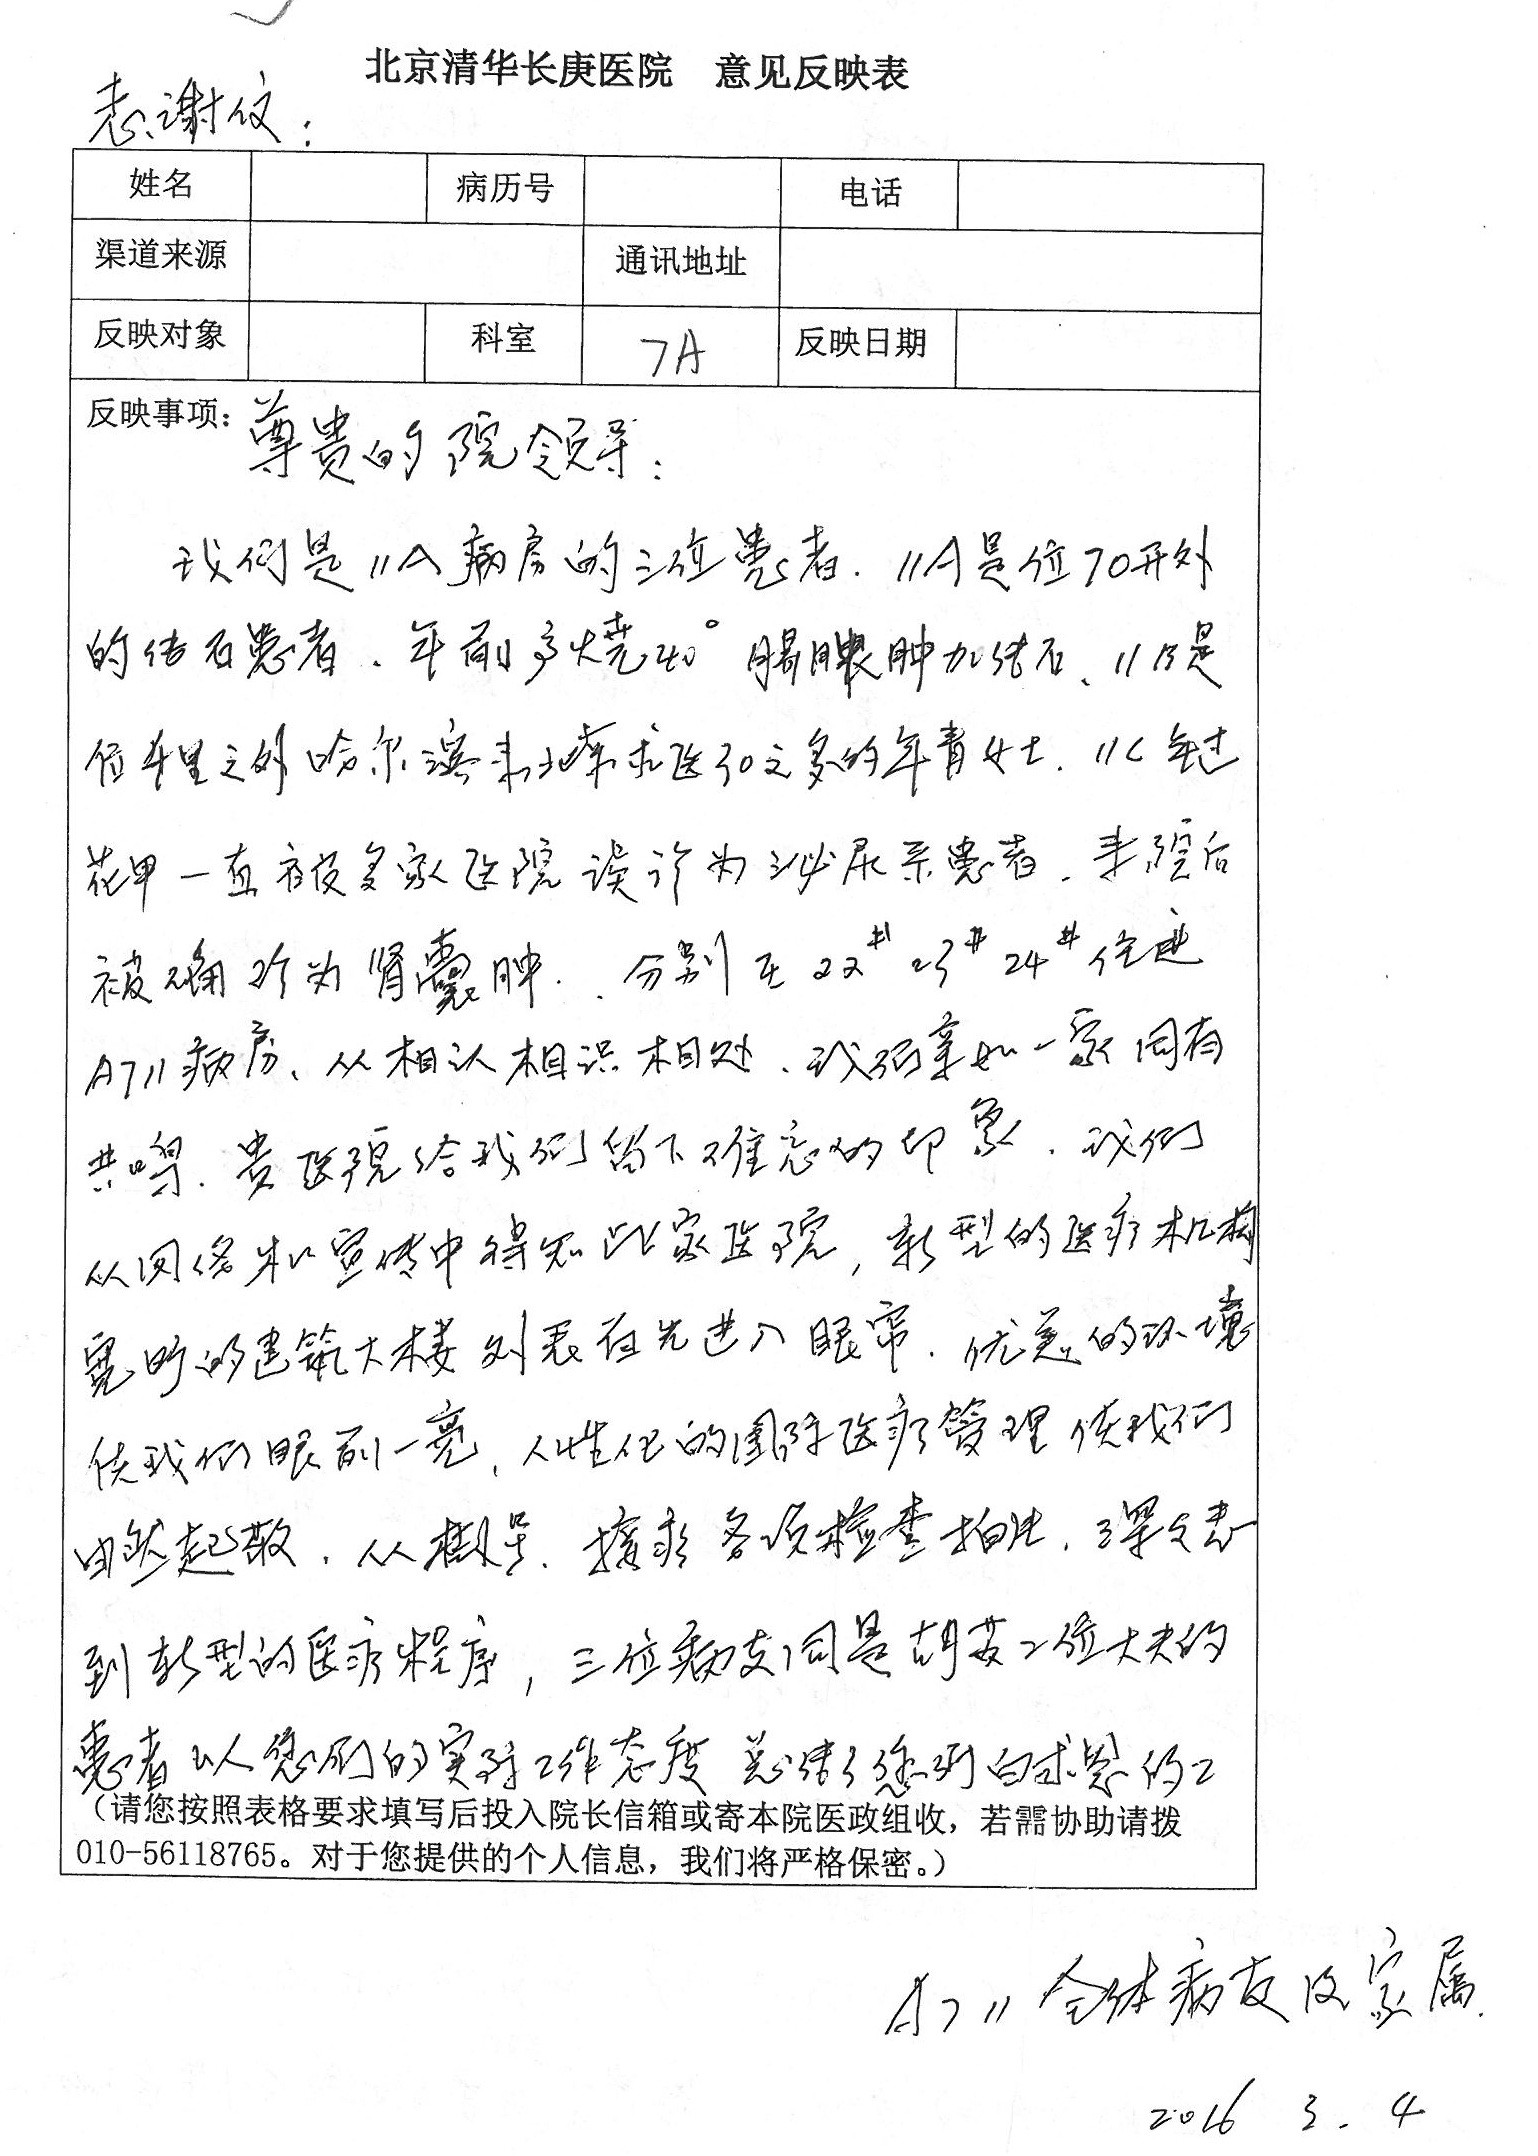 北京清华长庚医院 意见反映表
表谢信:
姓名 病历号 电话
渠道来源 通讯地址
反映对象 科室 7A 反映日期
反映事项: 尊贵的院领导:
我们是11A病房的三位患者. 11A是位70开外
的结石患者、年前高烧40° 肿加结石、11B是
位千里之外哈尔滨来北京求医30之多的年青女士. 11C年过
花甲一直被多家医院误诊为泌尿系患者. 来院后
被确诊为肾囊肿. 分别在22# 23# 24#住进
A711病房、从相认相识相处、我们亲如一家同有
共鸣. 贵医院给我们留下难忘的印象. 我们
从网络和宣传中得知此家医院, 新型的医疗机构
的建筑大楼 首先进入眼帘. 优美的环境
使我们眼前一亮, 人性化的国际医疗管理使我们
由然起敬. 从 号、接诊各项检查拍片.
到新型的医疗程序, 三位病友同是胡苏2位大夫的
患者以您们的实际工作态度 总结了您们白求恩的工
(请您按照表格要求填写后投入院长信箱或寄本院医政组收，若需协助请拨
010-56118765。对于您提供的个人信息，我们将严格保密。)
A711全体病友及家属.
2016 3. 4